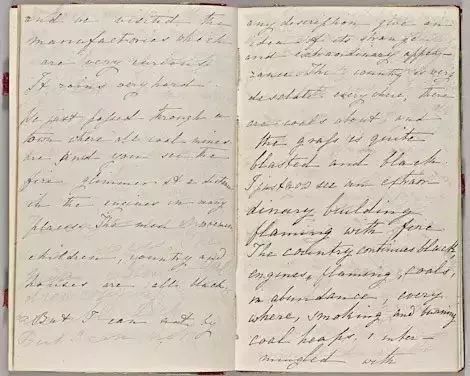 and we visited the
manufactories which
are very curious
It rains very hard
We just passed through a
town where all coal mines
are and you see the
fire glimmer at a distance
in the engines in many
places. The men, women
children, country and
houses are all black.
But I can not by
any description give an
idea of its strange
and extraordinary appea-
rance. The country is very
desolate every where; there
are coals about, and
the grass is quite
blasted and black.
I just now see an extraor
dinary building
flaming with fire
The country continues black,
engines, flaming, coals,
in abundance, every
where, smoking and burning
coal heaps, inter-
mingled with